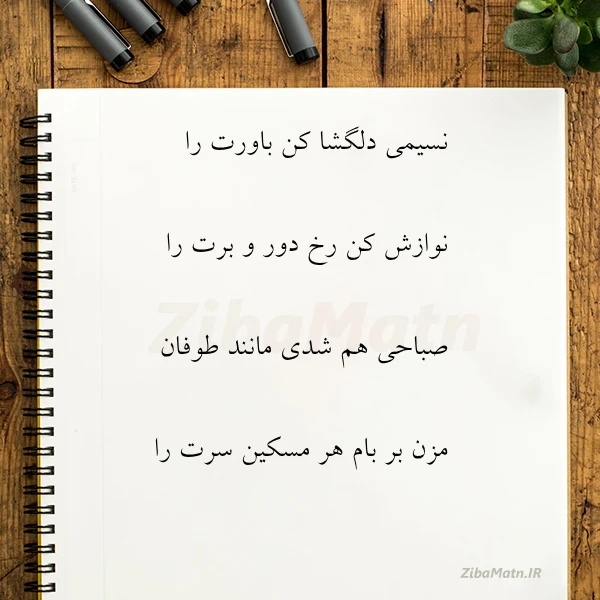 نسیمی دلگشا کن باورت را
نوازش کن رخ دور و برت را
ZibaMatn
صباحی هم شدی مانند طوفان
مزن بر بام هر مسکین سرت را
ZibaMatn.IR